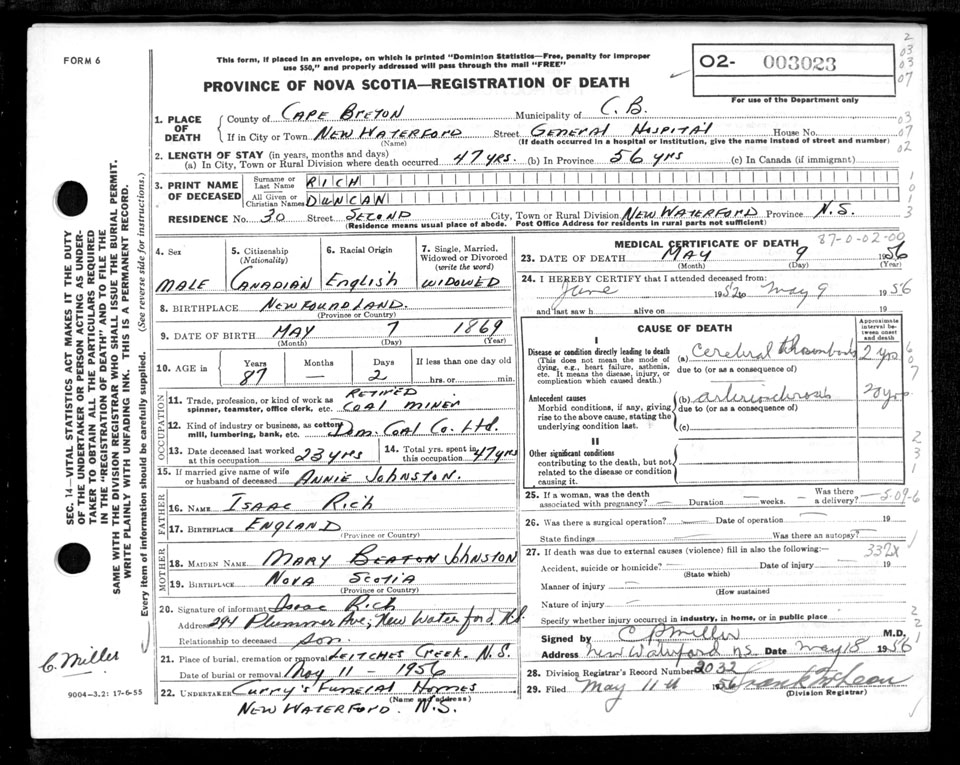 FORM 6
This form, if placed in an envelope, on which is printed "Dominion Statistics—Free, penalty for improper
use $50," and properly addressed will pass through the mail "FREE"
PROVINCE OF NOVA SCOTIA—REGISTRATION OF DEATH
02- 003023
For use of the Department only
1. PLACE OF DEATH County of CAPE BRETON Municipality of C.B.
If in City or Town NEW WATERFORD Street GENERAL HOSPITAL House No.
(Name) (If death occurred in a hospital or institution, give the name instead of street and number)
2. LENGTH OF STAY (in years, months and days)
(a) In City, Town or Rural Division where death occurred 47 yrs. (b) In Province 56 yrs (c) In Canada (if immigrant)
3. PRINT NAME OF DECEASED Surname or Last Name RICH
All Given or Christian Names DUNCAN
RESIDENCE No. 30 Street SECOND City, Town or Rural Division NEW WATERFORD Province N.S.
(Residence means usual place of abode. Post Office Address for residents in rural parts not sufficient)
4. Sex 5. Citizenship (Nationality) 6. Racial Origin 7. Single, Married, Widowed or Divorced (write the word)
MALE CANADIAN English WIDOWED
8. BIRTHPLACE NEWFOUNDLAND.
(Province or Country)
9. DATE OF BIRTH MAY 7 1869
(Month) (Day) (Year)
10. AGE in Years Months Days If less than one day old
87 — 2 hrs. or min.
OCCUPATION
11. Trade, profession, or kind of work as spinner, teamster, office clerk, etc. RETIRED COAL MINER
12. Kind of industry or business, as cotton mill, lumbering, bank, etc. Dm. Coal Co. Ltd.
13. Date deceased last worked at this occupation 23 yrs 14. Total yrs. spent in this occupation 47 yrs
15. If married give name of wife or husband of deceased ANNIE JOHNSTON.
FATHER
16. NAME ISAAC RICH
17. BIRTHPLACE ENGLAND
(Province or Country)
MOTHER
18. MAIDEN NAME MARY BEATON JOHNSTON
19. BIRTHPLACE NOVA SCOTIA
(Province or Country)
20. Signature of informant Isaac Rich
Address 294 Plummer Ave, New Waterford N.S.
Relationship to deceased son.
21. Place of burial, cremation or removal LEITCHES CREEK. N.S.
Date of burial or removal May 11 - 1956
22. UNDERTAKER Curry's Funeral Homes
(Name and address)
NEW WATERFORD. N.S.
MEDICAL CERTIFICATE OF DEATH
87-0-02-00
23. DATE OF DEATH MAY 9 1956
(Month) (Day) (Year)
24. I HEREBY CERTIFY that I attended deceased from:
June 1952 to May 9 1956
and last saw h alive on 19
CAUSE OF DEATH
Approximate interval between onset and death
I
Disease or condition directly leading to death
(This does not mean the mode of dying, e.g., heart failure, asthenia, etc. It means the disease, injury, or complication which caused death.)
(a) Cerebral thrombosis 2 yrs
due to (or as a consequence of)
Antecedent causes
Morbid conditions, if any, giving rise to the above cause, stating the underlying condition last.
(b) arteriosclerosis 20 yrs
due to (or as a consequence of)
(c)
II
Other significant conditions
contributing to the death, but not related to the disease or condition causing it.
25. If a woman, was the death associated with pregnancy? — Duration — weeks. — Was there a delivery?
26. Was there a surgical operation? — Date of operation — 19
State findings — Was there an autopsy? —
27. If death was due to external causes (violence) fill in also the following:— 332X
Accident, suicide or homicide? — Date of injury — 19
(State which)
Manner of injury —
(How sustained)
Nature of injury —
Specify whether injury occurred in industry, in home, or in public place
Signed by C P Miller M.D.
Address New Waterford N.S. Date May 18 1956
28. Division Registrar's Record Number 2032
29. Filed May 11th 1956 Frank McLean
(Division Registrar)
SEC. 14—VITAL STATISTICS ACT MAKES IT THE DUTY
OF THE UNDERTAKER OR PERSON ACTING AS UNDER-
TAKER TO OBTAIN ALL THE PARTICULARS REQUIRED
IN THE "REGISTRATION OF DEATH" AND TO FILE THE
SAME WITH THE DIVISION REGISTRAR WHO SHALL ISSUE THE BURIAL PERMIT.
WRITE PLAINLY WITH UNFADING INK. THIS IS A PERMANENT RECORD.
Every item of information should be carefully supplied. (See reverse side for instructions.)
C. Miller
9004—3.2: 17-6-55